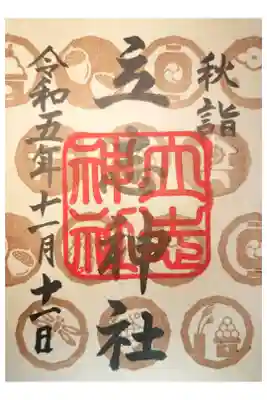 秋詣
立志神社
令和五年十一月十一日
立志
神社